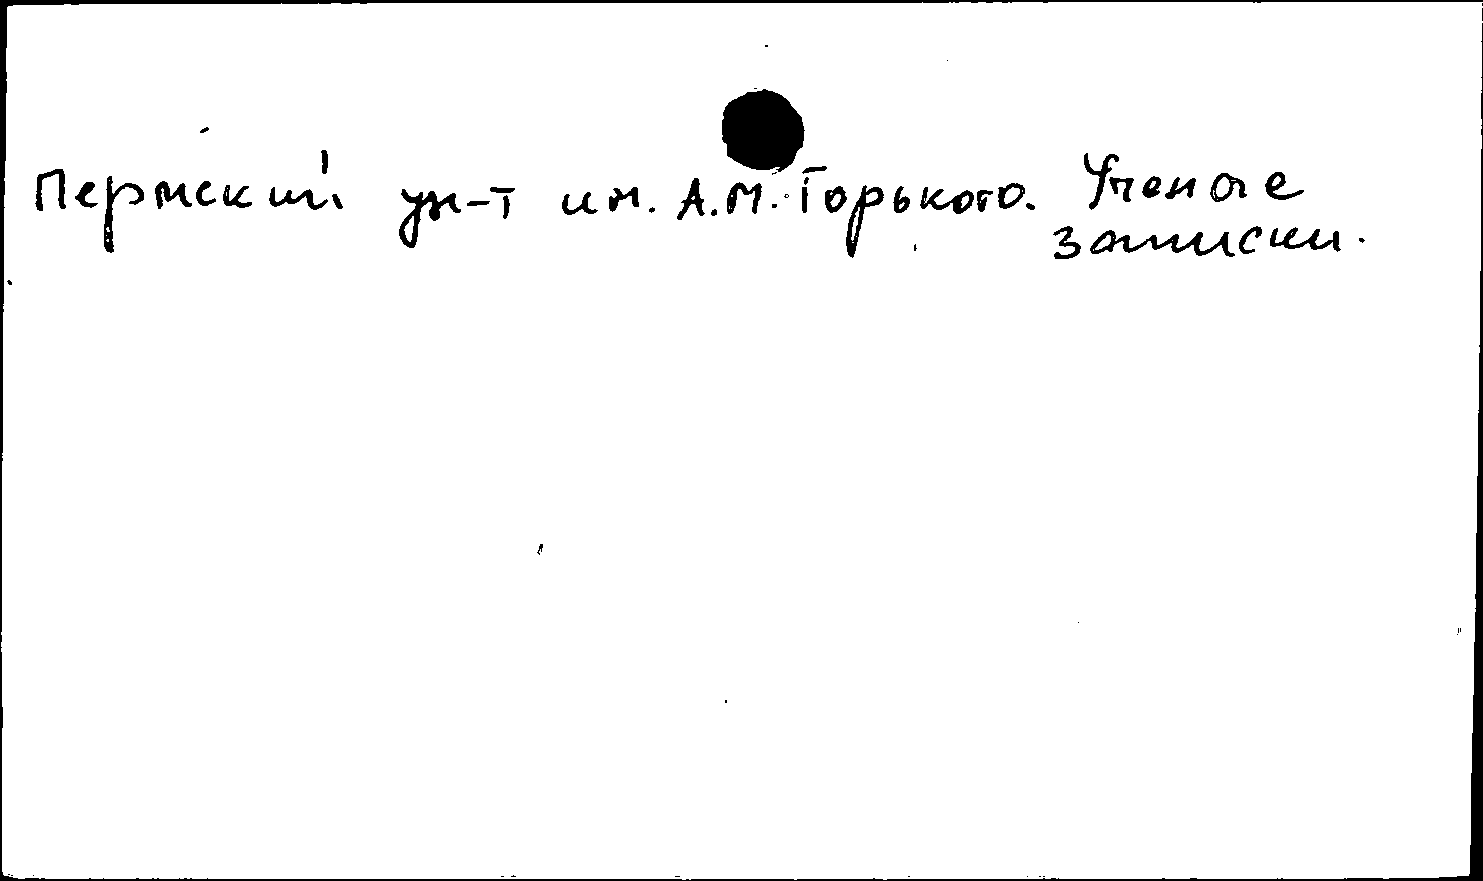 Пермский ун-т им. А.М. Горького. Ученые
записки.